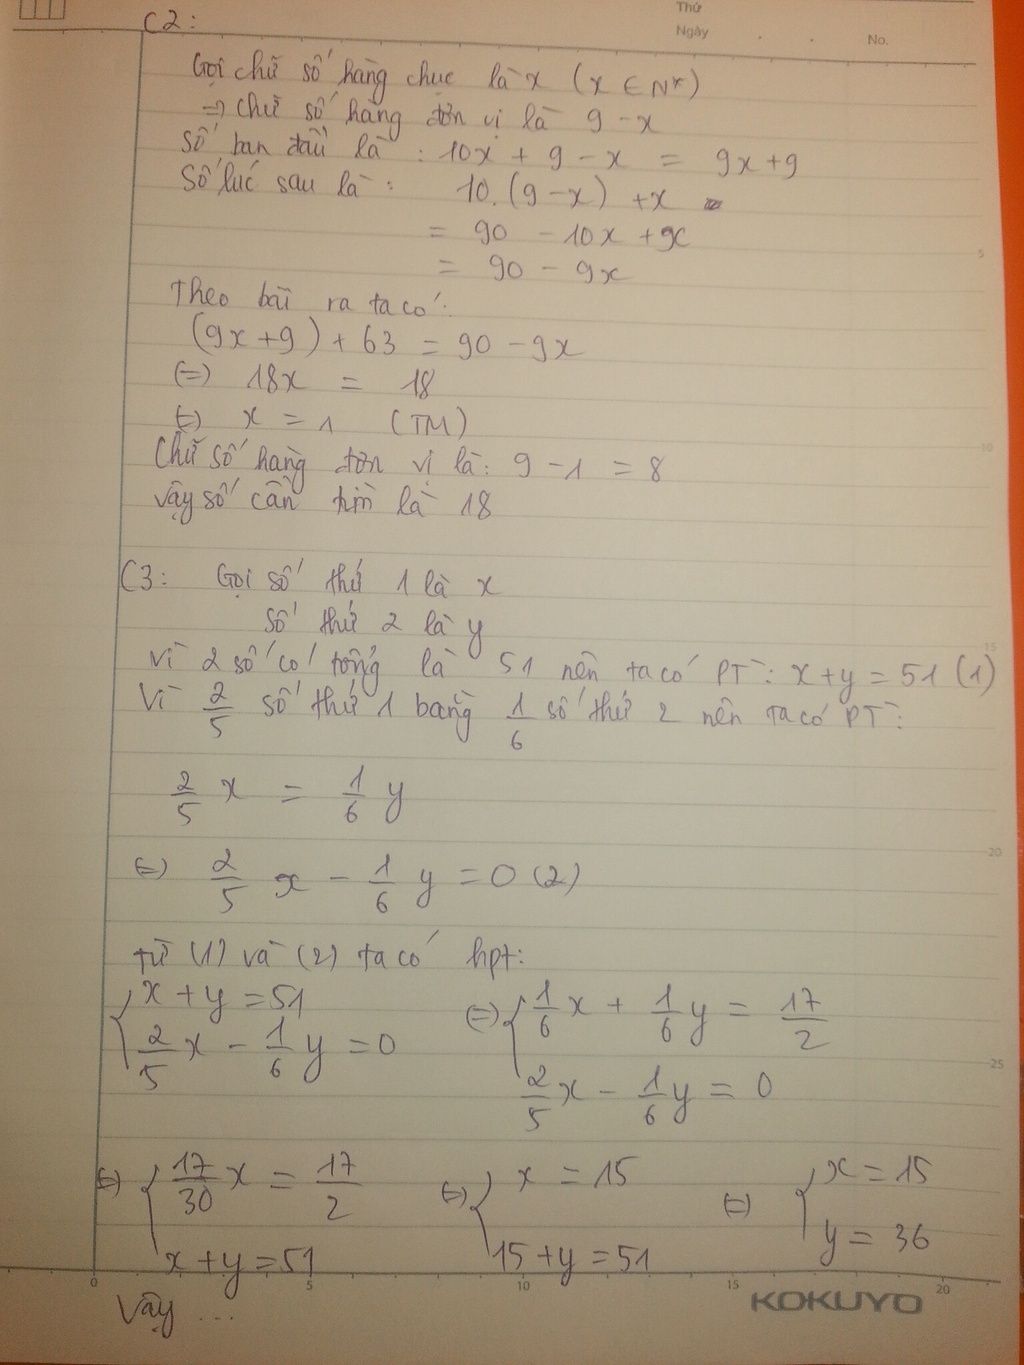 Thứ
Ngày . . No.
C2:
Gọi chữ số hàng chục là x (x ∈ N*)
=> chữ số hàng đơn vị là 9 - x
Số ban đầu là : 10x + 9 - x = 9x + 9
Số lúc sau là : 10.(9 - x) + x
= 90 - 10x + x
= 90 - 9x
Theo bài ra ta có:
(9x + 9) + 63 = 90 - 9x
(=) 18x = 18
(=) x = 1 (TM)
Chữ số hàng đơn vị là: 9 - 1 = 8
Vậy số cần tìm là 18
C3: Gọi số thứ 1 là x
số thứ 2 là y
Vì 2 số có tổng là 51 nên ta có PT: x + y = 51 (1)
Vì 2/5 số thứ 1 bằng 1/6 số thứ 2 nên ta có PT:
2/5 x = 1/6 y
(=) 2/5 x - 1/6 y = 0 (2)
Từ (1) và (2) ta có hpt:
{ x + y = 51 (=) { 1/6 x + 1/6 y = 17/2
2/5 x - 1/6 y = 0 2/5 x - 1/6 y = 0
(=) { 17/30 x = 17/2 (=) { x = 15 (=) { x = 15
x + y = 51 15 + y = 51 y = 36
Vậy ...
5
10
15
20
25
0 5 10 15 20
KOKUYO